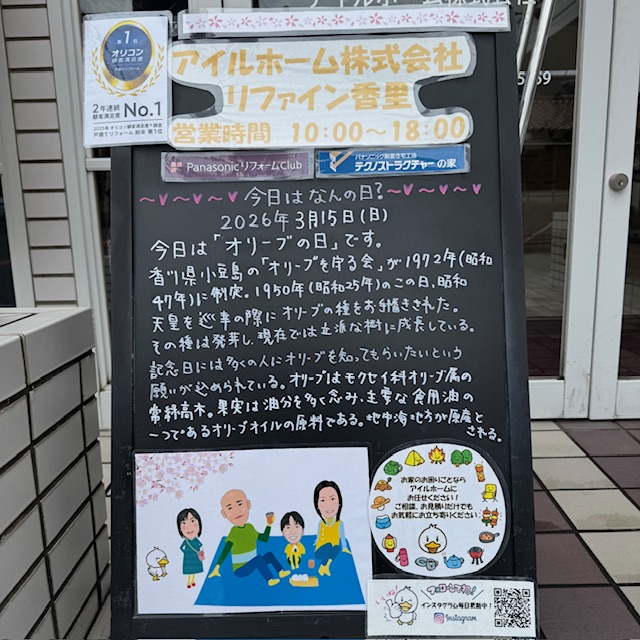 第1位
オリコン
顧客満足度
2年連続
顧客満足度
No.1
2025年 オリコン顧客満足度®調査
戸建てリフォーム 総合 第1位
アイルホーム株式会社
リファイン香里
営業時間 10:00～18:00
Panasonic リフォームClub
パナソニック耐震住宅工法
テクノストラクチャーの家
～♥～♥～♥ 今日はなんの日? ～♥～♥～♥
2026年3月15日(日)
今日は「オリーブの日」です。
香川県小豆島の「オリーブを守る会」が1972年(昭和
47年)に制定。1950年(昭和25年)のこの日、昭和
天皇を巡幸の際にオリーブの種をお手播きされた。
その種は発芽し、現在では立派な樹に成長している。
記念日には多くの人にオリーブを知ってもらいたいという
願いが込められている。オリーブはモクセイ科オリーブ属の
常緑高木。果実は油分を多く含み、主要な食用油の
一つであるオリーブオイルの原料である。地中海地方が原産と
される。
お家のお困りごとなら
アイルホームに
お任せください!
ご相談、お見積りだけでも
お気軽にお立ち寄りください
いいね!
フォローしてね!
インスタグラム毎日更新中!
Instagram